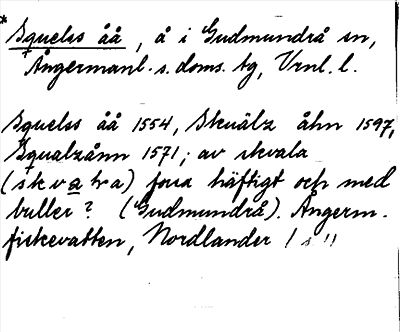 *Squelss åå, å i Gudmundrå sn,
Ångermanl. s. doms. tg, Vrnl. l.
Squelss åå 1554, Skuälz åhn 1597,
Squalzånn 1571; av skvala
(skvatra) forsa häftigt och med
buller? (Gudmundrå). Ångerm.
fiskevatten, Nordlander